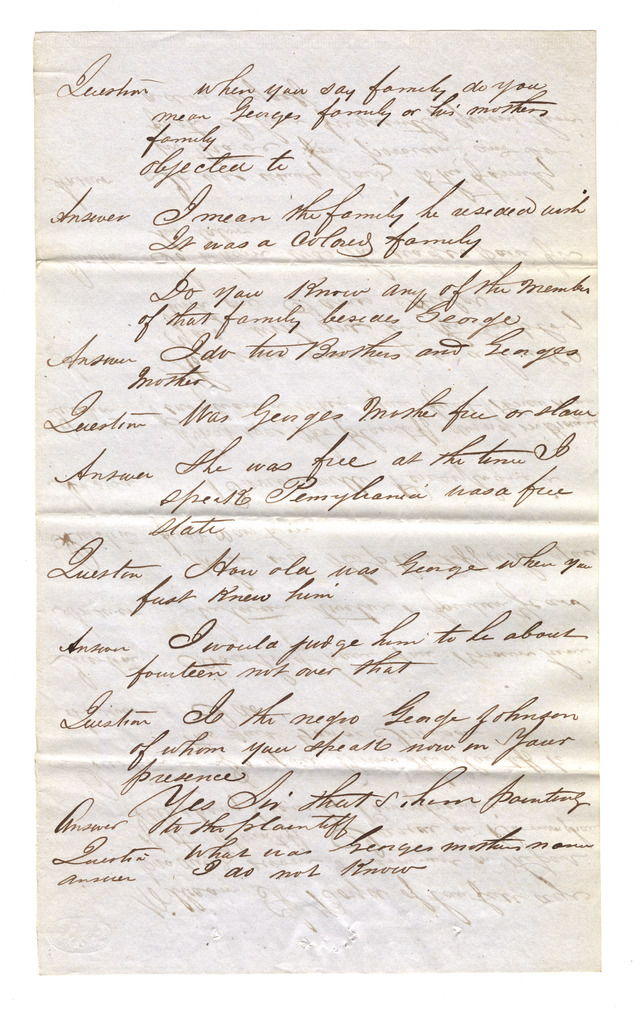 Question when you say family do you
mean Georges family or his mothers
family
objected to
Answer I mean the family he resided with
It was a Colored family
Do you Know any of the Member
of that family besides George
Answer I do two Brothers and Georges
Mother
Question Was Georges Mother free or slave
Answer She was free at the time I
speak Pennsylvania was a free
state
Question How old was George when you
fust Knew him
Answer I would judge him to be about
fourteen not over that
Question Is the negro George Johnson
of whom you speak now in Your
presence
Yes Sir that s him pointing
Answer to the plaintiff
Question what was Georges mothers name
answer I do not Know